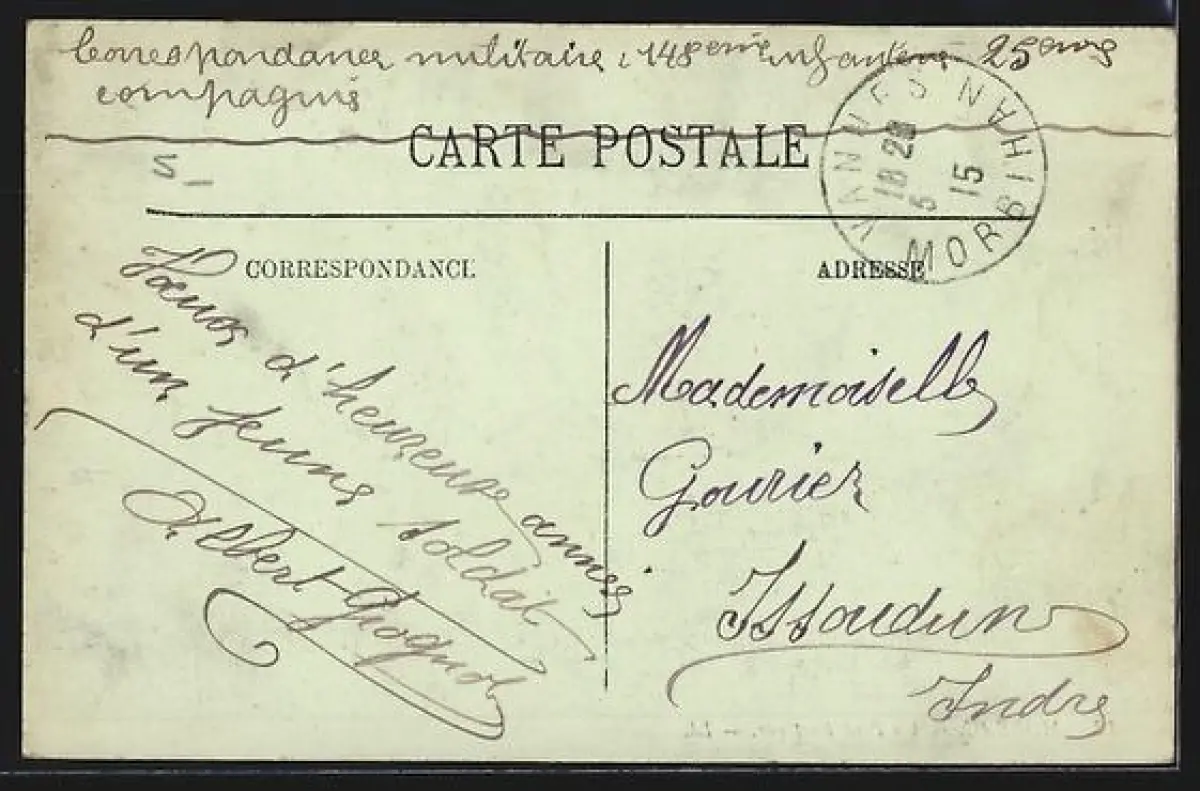 Correspondance militaire, 148eme infanterie 25eme
compagnie
CARTE POSTALE
5-
VANNES MORBIHAN
18 23
5 15
CORRESPONDANCE
ADRESSE
Vœux d'heureuse année
d'un jeune soldat
Albert
Mademoiselle
Gourier
Issoudun
Indre